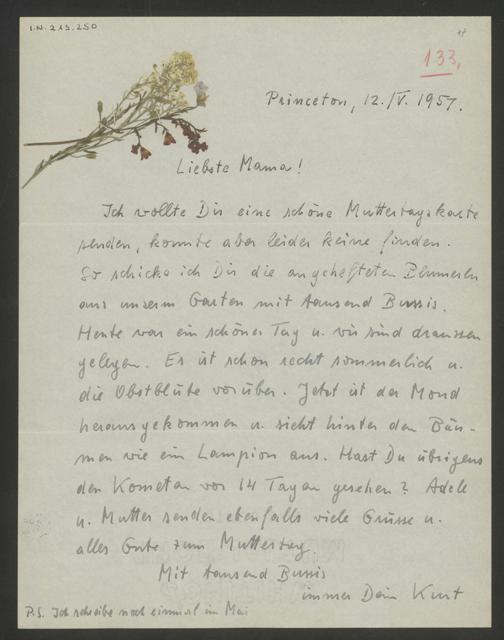 I.N. 213.250
18
133.
Princeton, 12./V. 1957.
Liebste Mama!
Ich wollte Dir eine schöne Muttertagskarte
senden, konnte aber leider keine finden.
So schicke ich Dir die angehefteten Blumerln
aus unserm Garten mit tausend Bussis.
Heute war ein schöner Tag u. wir sind draussen
gelegen. Es ist schon recht sommerlich u.
die Obstblüte vorüber. Jetzt ist der Mond
herausgekommen u. sieht hinter den Bäu-
men wie ein Lampion aus. Hast Du übrigens
den Kometen vor 14 Tagen gesehen? Adele
u. Mutter senden ebenfalls viele Grüsse u.
alles Gute zum Muttertag.
Mit tausend Bussis
immer Dein Kurt
P.S. Ich schreibe noch einmal im Mai